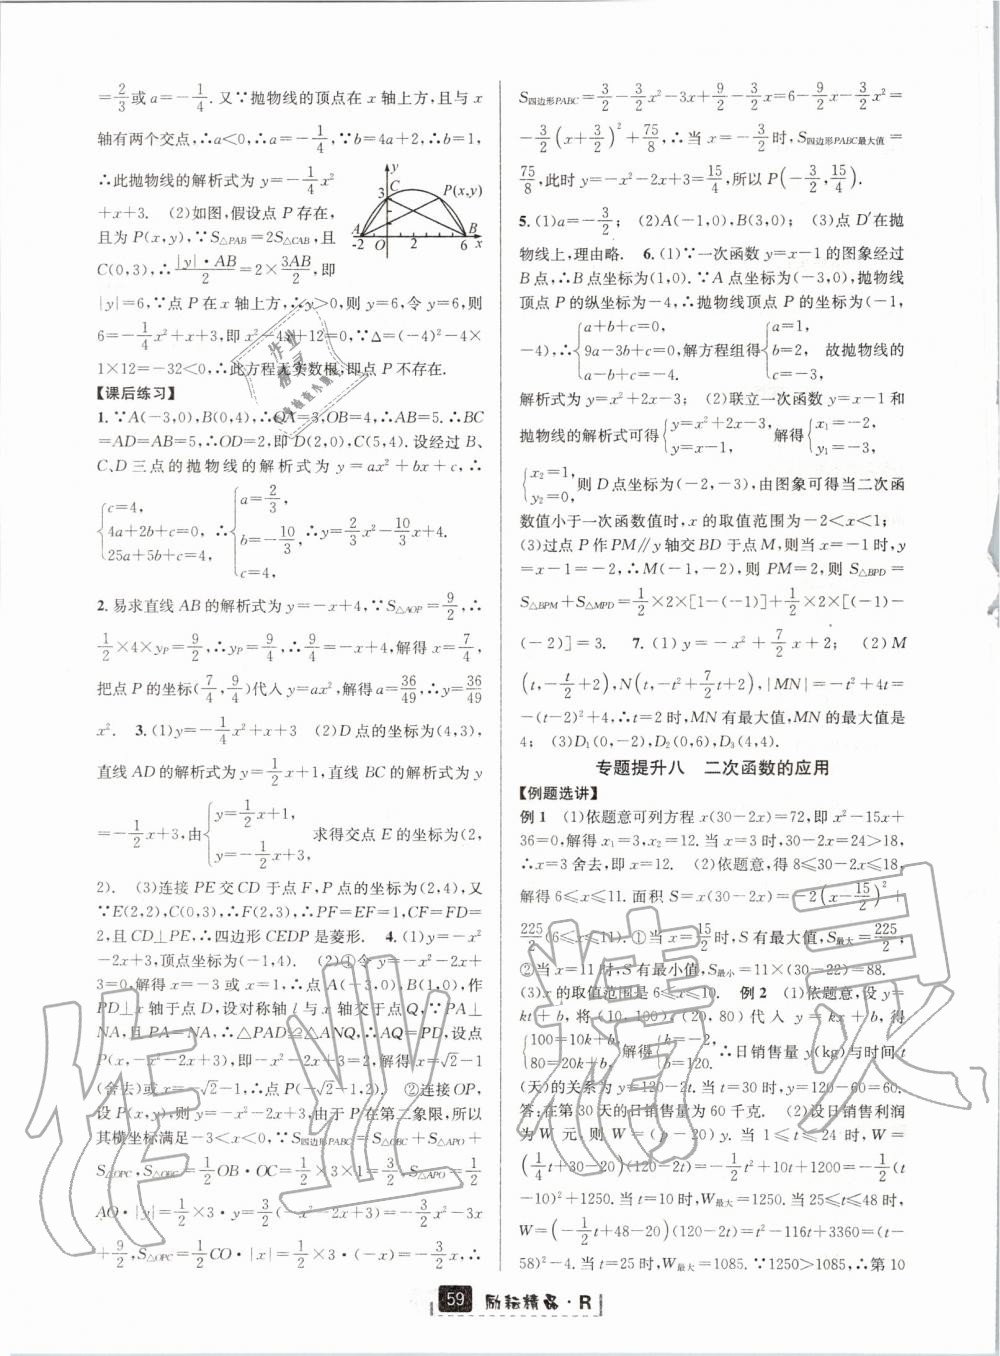 =2/3或a=-1/4.又∵抛物线的顶点在x轴上方,且与x
轴有两个交点,∴a<0,∴a=-1/4,∵b=4a+2,∴b=1,
∴此抛物线的解析式为y=-1/4x²
+x+3. (2)如图,假设点P存在,
且为P(x,y),∵S△PAB=2S△CAB,且
C(0,3),∴|y|·AB/2=2×3AB/2,即
y
3
C
P(x,y)
A
B
-2
O
2
6
x
|y|=6,∵点P在x轴上方,∴y>0,则y=6,令y=6,则
6=-1/4x²+x+3,即x²-4x+12=0,∵Δ=(-4)²-4×
1×12=-32<0,∴此方程无实数根,即点P不存在.
【课后练习】
1.∵A(-3,0),B(0,4),∴OA=3,OB=4,∴AB=5.∴BC
=AD=AB=5,∴OD=2,即D(2,0),C(5,4).设经过B、
C、D三点的抛物线的解析式为y=ax²+bx+c,∴
{c=4, 4a+2b+c=0, 25a+5b+c=4, ∴{a=2/3, b=-10/3, c=4, ∴y=2/3x²-10/3x+4.
2.易求直线AB的解析式为y=-x+4,∵S△AOP=9/2,∴
1/2×4×yP=9/2,∴yP=9/4,∴9/4=-x+4,解得x=7/4,
把点P的坐标(7/4,9/4)代入y=ax²,解得a=36/49,∴y=36/49
x². 3.(1)y=-1/4x²+x+3 (2)D点的坐标为(4,3),
直线AD的解析式为y=1/2x+1,直线BC的解析式为y
=-1/2x+3,由{y=1/2x+1, y=-1/2x+3, 求得交点E的坐标为(2,
2). (3)连接PE交CD于点F,P点的坐标为(2,4),又
∵E(2,2),C(0,3),∴F(2,3),∴PF=EF=1,CF=FD=
2,且CD⊥PE,∴四边形CEDP是菱形. 4.(1)y=-x²
-2x+3,顶点坐标为(-1,4). (2)①令y=-x²-2x+
3=0,解得x=-3或x=1,∴点A(-3,0),B(1,0),作
PD⊥x轴于点D,设对称轴l与x轴交于点Q,∵PA⊥
NA,且PA=NA,∴△PAD≌△ANQ,∴AQ=PD,设点
P(x,-x²-2x+3),即-x²-2x+3=2,解得x=√2-1
(舍去)或x=-√2-1,∴点P(-√2-1,2). ②连接OP,
设P(x,y),则y=-x²-2x+3,由于P在第二象限,所以
其横坐标满足-3<x<0,∵S四边形PABC=S△OBC+S△APO+
S△OPC,S△OBC=1/2OB·OC=1/2×3×1=3/2,S△APO=1/2
AO·|y|=1/2×3·y=3/2(-x²-2x+3)=-3/2x²-3x
+9/2,S△OPC=1/2CO·|x|=1/2×3·(-x)=-3/2x,∴
S四边形PABC=3/2-3/2x²-3x+9/2-3/2x=6-9/2x-3/2x²=
-3/2(x+3/2)²+75/8,∴当x=-3/2时,S四边形PABC最大值=
75/8,此时y=-x²-2x+3=15/4,所以P(-3/2,15/4).
5.(1)a=-3/2; (2)A(-1,0),B(3,0); (3)点D′在抛
物线上,理由略. 6.(1)∵一次函数y=x-1的图象经过
B点,∴B点坐标为(1,0).∵A点坐标为(-3,0),抛物线
顶点P的纵坐标为-4,∴抛物线顶点P的坐标为(-1,
-4),∴{a+b+c=0, 9a-3b+c=0, a-b+c=-4, 解方程组得{a=1, b=2, c=-3. 故抛物线的
解析式为y=x²+2x-3; (2)联立一次函数y=x-1和
抛物线的解析式可得{y=x²+2x-3, y=x-1, 解得{x₁=-2, y₁=-3,
{x₂=1, y₂=0, 则D点坐标为(-2,-3),由图象可得当二次函
数值小于一次函数值时,x的取值范围为-2<x<1;
(3)过点P作PM∥y轴交BD于点M,则当x=-1时,y
=x-1=-2,∴M(-1,-2),则PM=2,则S△BPD=
S△BPM+S△MPD=1/2×2×[1-(-1)]+1/2×2×[(-1)-
(-2)]=3. 7.(1)y=-x²+7/2x+2; (2)M
(t,-t/2+2),N(t,-t²+7/2t+2),|MN|=-t²+4t=
-(t-2)²+4,∴t=2时,MN有最大值,MN的最大值是
4; (3)D₁(0,-2),D₂(0,6),D₃(4,4).
专题提升八 二次函数的应用
【例题选讲】
例1 (1)依题意可列方程x(30-2x)=72,即x²-15x+
36=0,解得x₁=3,x₂=12.当x=3时,30-2x=24>18,
∴x=3舍去,即x=12. (2)依题意,得8≤30-2x≤18,
解得6≤x≤11.面积S=x(30-2x)=-2(x-15/2)²+
225/2(6≤x≤11).①当x=15/2时,S有最大值,S最大=225/2;
②当x=11时,S有最小值,S最小=11×(30-22)=88.
(3)x的取值范围是6≤x≤10. 例2 (1)依题意,设y=
kt+b,将(10,100),(20,80)代入y=kx+b,得
{100=10k+b, 80=20k+b, 解得{k=-2, b=120. ∴日销售量y(kg)与时间t
(天)的关系为y=120-2t.当t=30时,y=120-60=60.
答:在第30天的日销售量为60千克. (2)设日销售利润
为W元,则W=(p-20)y.当1≤t≤24时,W=
(1/4t+30-20)(120-2t)=-1/2t²+10t+1200=-1/2(t
-10)²+1250.当t=10时,W最大=1250.当25≤t≤48时,
W=(-1/2t+48-20)(120-2t)=t²-116t+3360=(t-
58)²-4.当t=25时,W最大=1085.∵1250>1085,∴第10
59 励耘精品·R
作业精灵